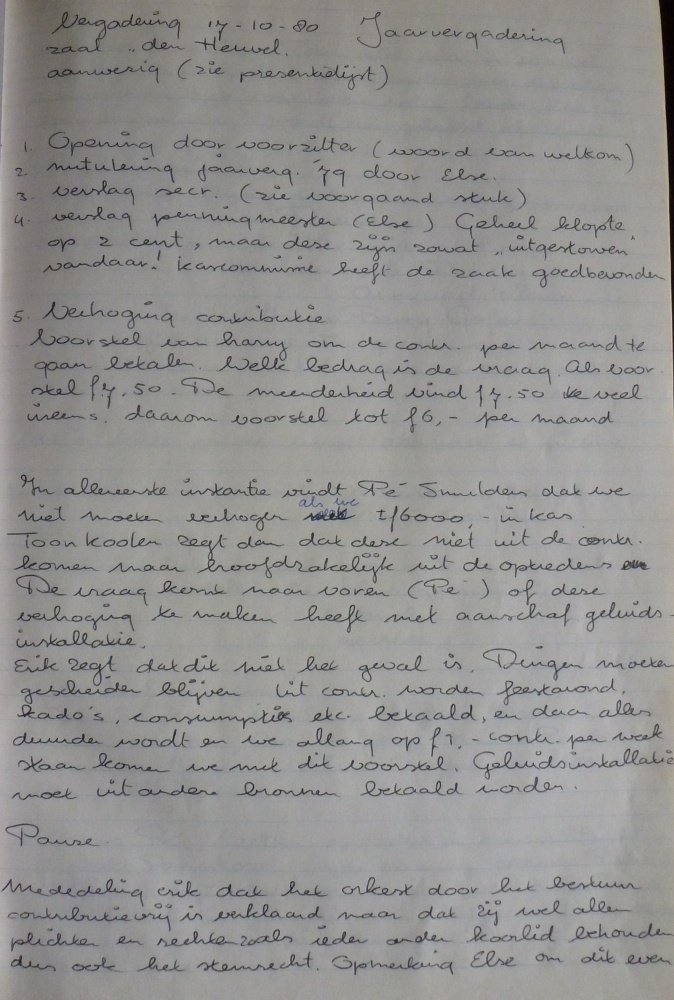 Vergadering 17-10-80 Jaarvergadering
zaal „den Heuvel.
aanwezig (zie presentielijst)
1. Opening door voorzitter (woord van welkom)
2. nutulering jaarverg. '79 door Else.
3. verslag secr. (zie voorgaand stuk)
4. verslag penningmeester (Else) Geheel klopte
op 2 cent, maar deze zijn zowat „uitgestorven"
vandaar! kascommissie heeft de zaak goedbevonden
5. Verhoging contributie
Voorstel van harry om de contr. per maand te
gaan betalen. Welk bedrag is de vraag. Als voor-
stel f7.50. De meerderheid vind f7.50 te veel
ineens, daarom voorstel tot f6,- per maand
In allereerste instantie vindt Pé Smulders dat we
niet moeten verhogen als we ±f6000,- in kas
Toon Koolen zegt dan dat deze niet uit de contr.
komen maar hoofdzakelijk uit de optredens
De vraag komt naar voren (Pé) of deze
verhoging te maken heeft met aanschaf geluids-
installatie.
Erik zegt dat dit niet het geval is. Dingen moeten
gescheiden blijven Uit contr. worden feestavond,
kado's, consumpties etc. betaald, en daar alles
duurder wordt en we allang op f1,- contr. per week
staan komen we met dit voorstel. Geluidsinstallatie
moet uit andere bronnen betaald worden.
Pauze.
Mededeling erik dat het orkest door het bestuur
contributievrij is verklaard maar dat zij wel allen
plichten en rechten zoals ieder ander koorlid behouden
dus ook het stemrecht. Opmerking Else om dit even